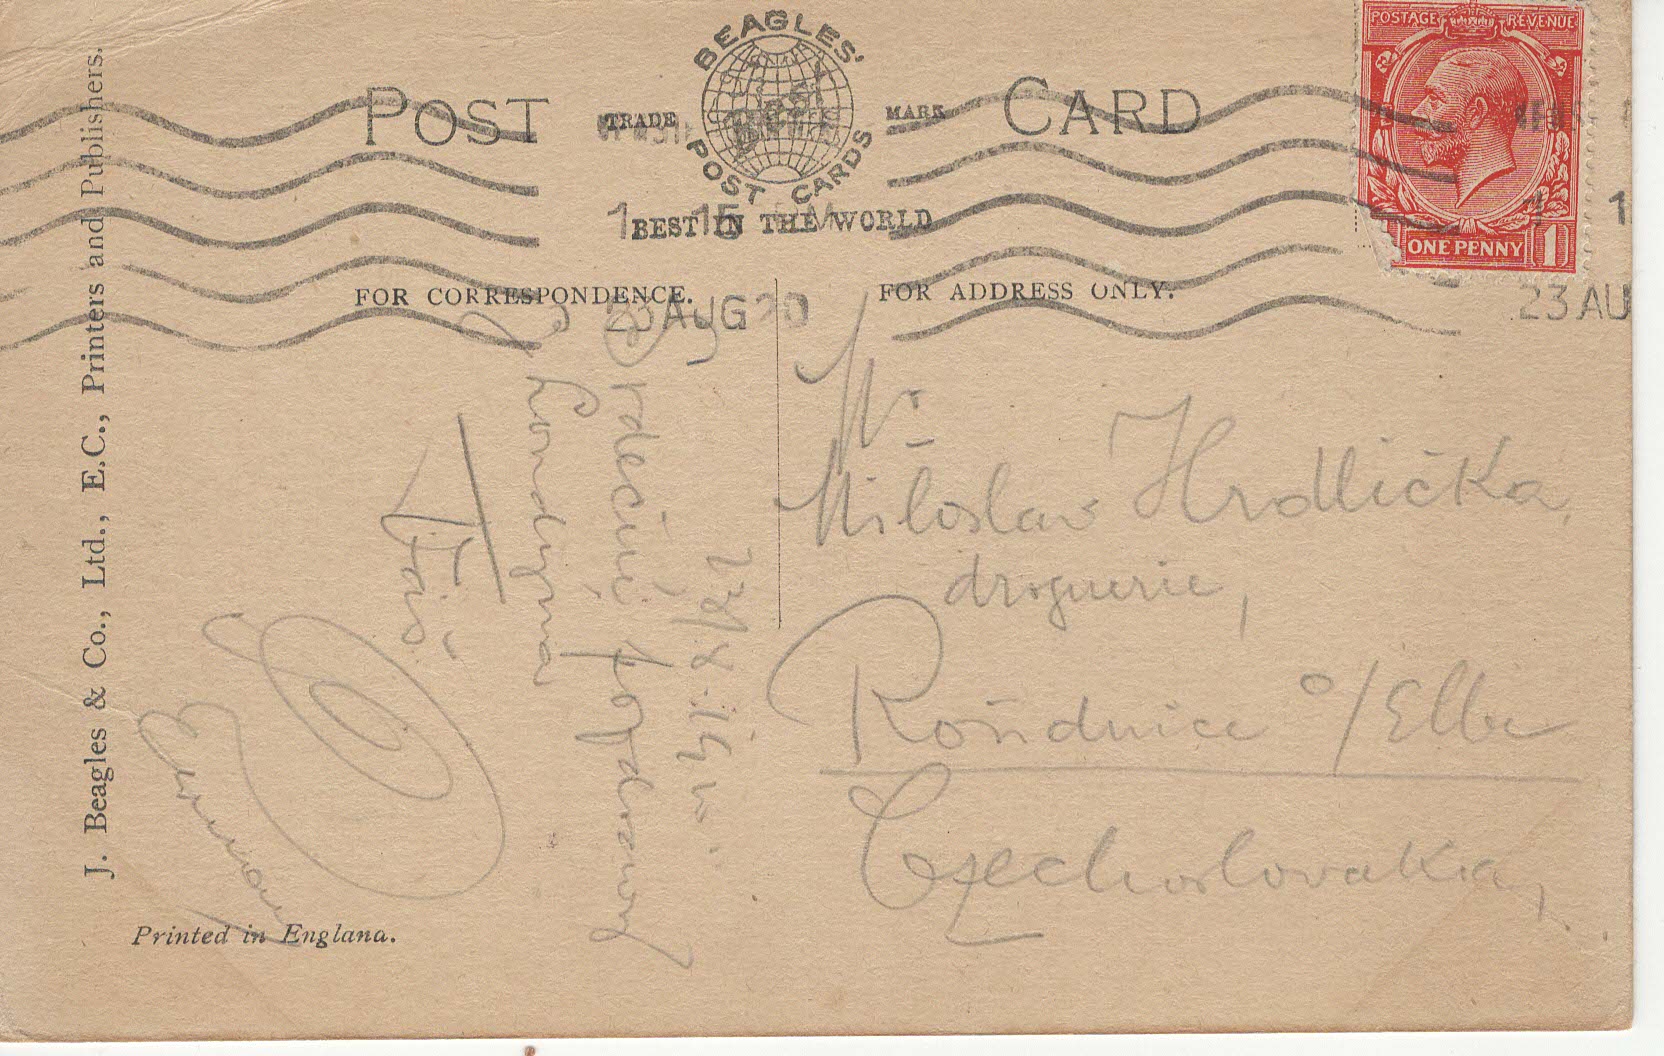 POST CARD
BEAGLES'
TRADE MARK
POST CARDS
BEST IN THE WORLD
POSTAGE REVENUE
ONE PENNY 1
1 15 PM
23 AUG 20
23 AU
FOR CORRESPONDENCE.
FOR ADDRESS ONLY.
J. Beagles & Co., Ltd., E.C., Printers and Publishers.
Mr
Miloslav Hrdlička,
droguerie,
Roudnice o/Elbe
Czechoslovakia,
Srdečný pozdrav
z Londýna
Váš
Printed in England.